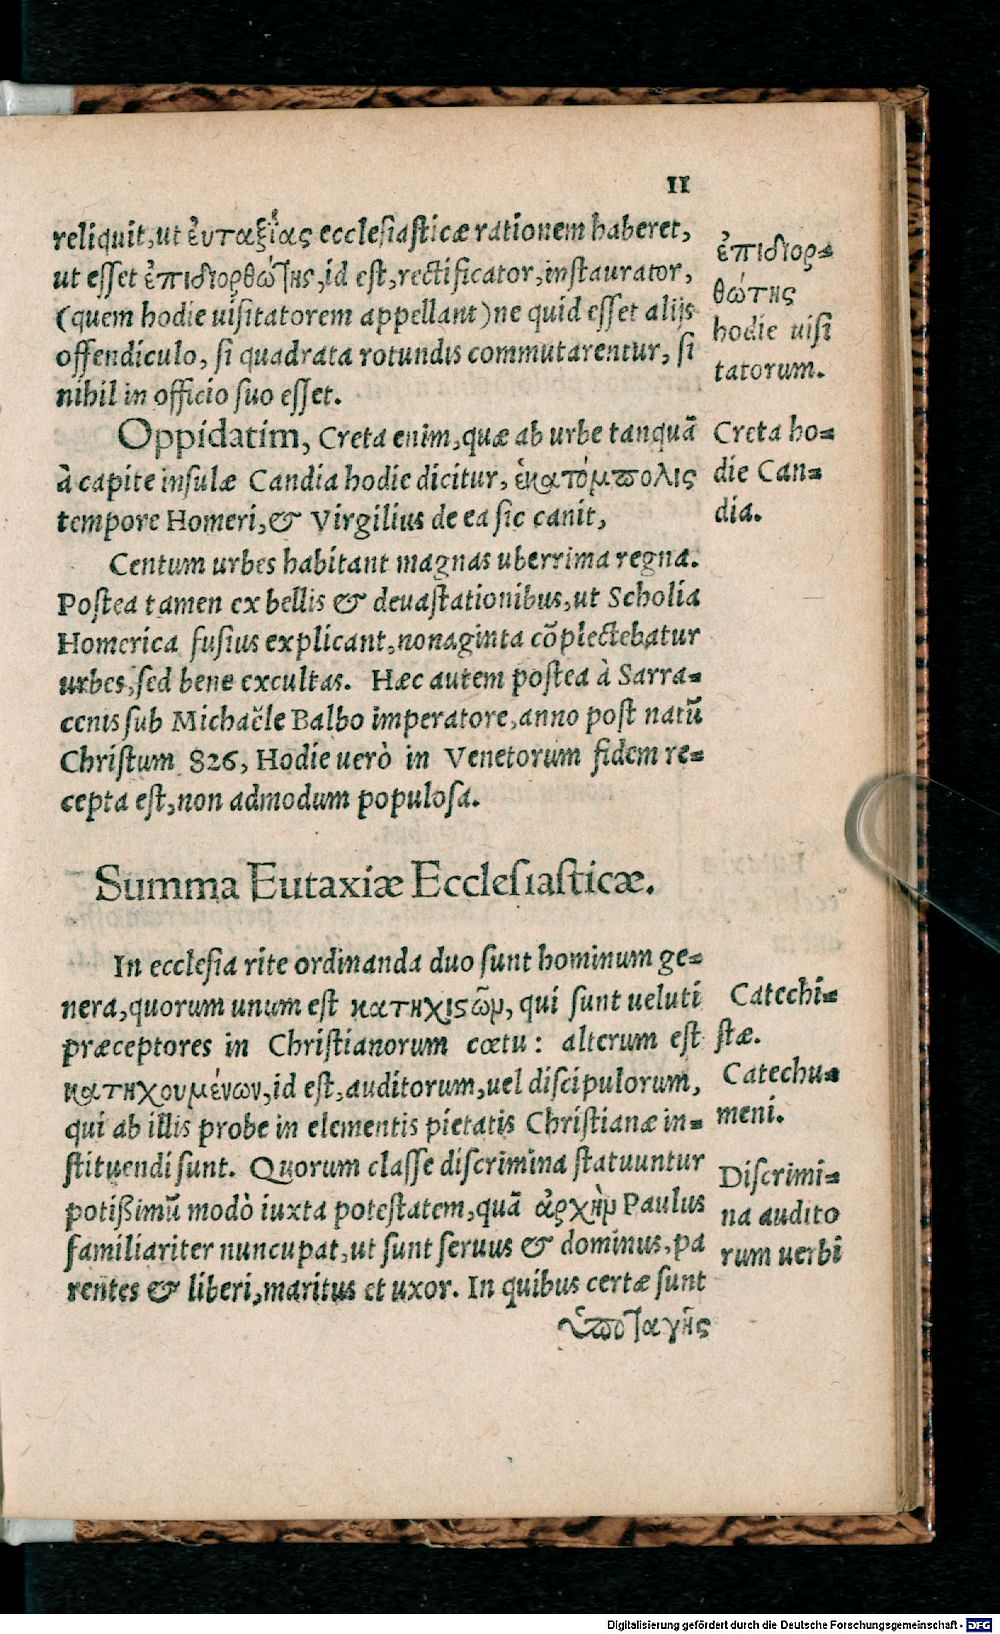 11
reliquit, ut ἐυταξίας ecclesiasticæ rationem haberet,
ut esset ἐπιδιορθώτης, id est, rectificator, instaurator,
(quem hodie uisitatorem appellant) ne quid esset alijs
offendiculo, si quadrata rotundis commutarentur, si
nihil in officio suo esset.
ἐπιδιορ=
θώτης
hodie uisi
tatorum.
Oppidatim, Creta enim, quæ ab urbe tanquã
à capite insulæ Candia hodie dicitur, ἑκατόμπολις
tempore Homeri, & Virgilius de ea sic canit,
Creta ho=
die Can=
dia.
Centum urbes habitant magnas uberrima regna.
Postea tamen ex bellis & deuastationibus, ut Scholia
Homerica fusius explicant, nonaginta cõplectebatur
urbes, sed bene excultas. Hæc autem postea à Sarra=
cenis sub Michaële Balbo imperatore, anno post natũ
Christum 826, Hodie uerò in Venetorum fidem re=
cepta est, non admodum populosa.
Summa Eutaxiæ Ecclesiasticæ.
In ecclesia rite ordinanda duo sunt hominum ge=
nera, quorum unum est κατηχιστῶν, qui sunt ueluti
præceptores in Christianorum cœtu: alterum est
κατηχουμένων, id est, auditorum, uel discipulorum,
qui ab illis probe in elementis pietatis Christianæ in=
stituendi sunt. Quorum classe discrimina statuuntur
potißimũ modò iuxta potestatem, quã ἀρχὴν Paulus
familiariter nuncupat, ut sunt seruus & dominus, pa
rentes & liberi, maritus et uxor. In quibus certæ sunt
ὑποταγῆς
Catechi=
stæ.
Catechu=
meni.
Discrimi=
na audito
rum uerbi
Digitalisierung gefördert durch die Deutsche Forschungsgemeinschaft - DFG